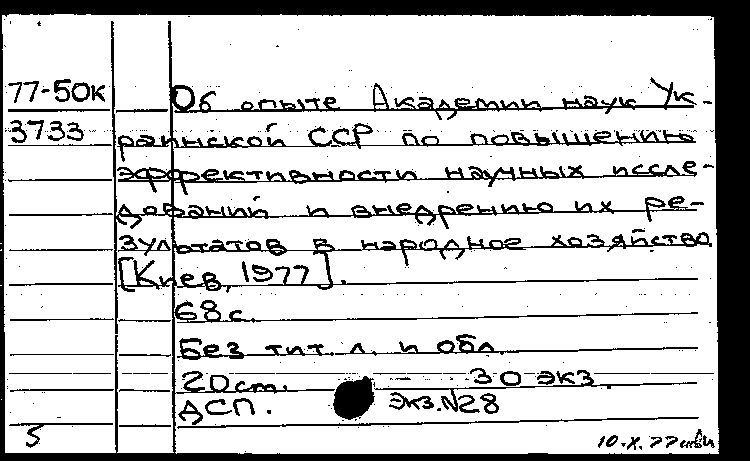 77-50к Об опыте Академии наук Ук-
3733 раинской ССР по повышению
эффективности научных иссле-
дований и внедрению их ре-
зультатов в народное хозяйство
[Киев, 1977].
68с.
Без тит. л. и обл.
20 cm. 30 экз.
ДСП. Экз.N28
5 10.X.77